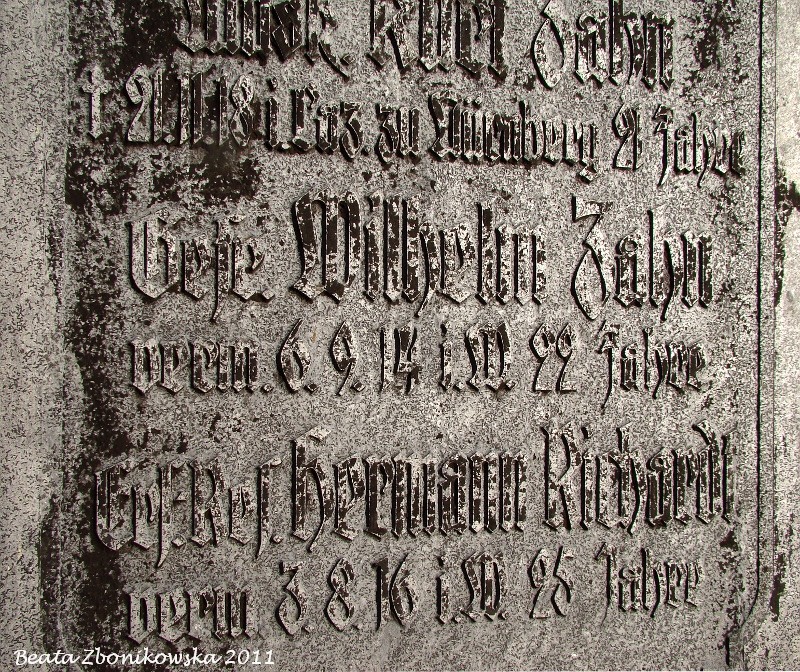 Musk. Kurt Zahn
† 21.11.18 i. Laz. zu Nürnberg 21 Jahre
Gefr. Wilhelm Zahn
verm. 6. 9. 14 i. W. 22 Jahre
Ers. Res. Hermann Richardt
verm. 3. 8. 16 i. W. 25 Jahre
Beata Zbonikowska 2011